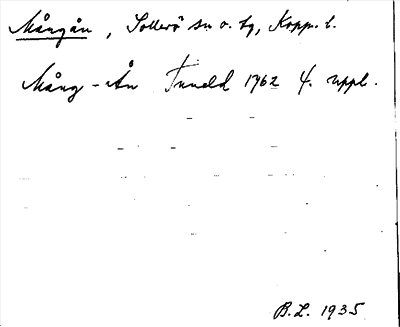 Mångån, Sollerö sn o. tg, Kopp. l.
Mång-Ån Tuneld 1762 4. uppl.
B.L. 1935